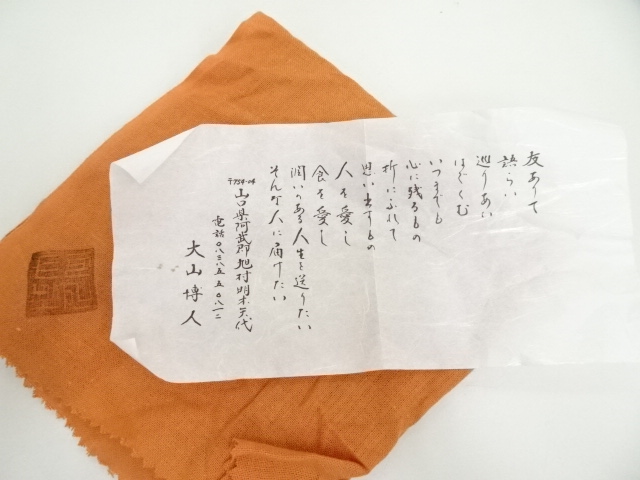 友ありて
語らい
巡りあい
はぐくむ
いつまでも
心に残るもの
折にふれて
思い出すもの
人を愛し
食を愛し
潤いのある人生を送りたい
そんな人に届けたい
〒754-04
山口県阿武郡旭村明木矢代
電話〇八三八五五〇八一二
大山博人